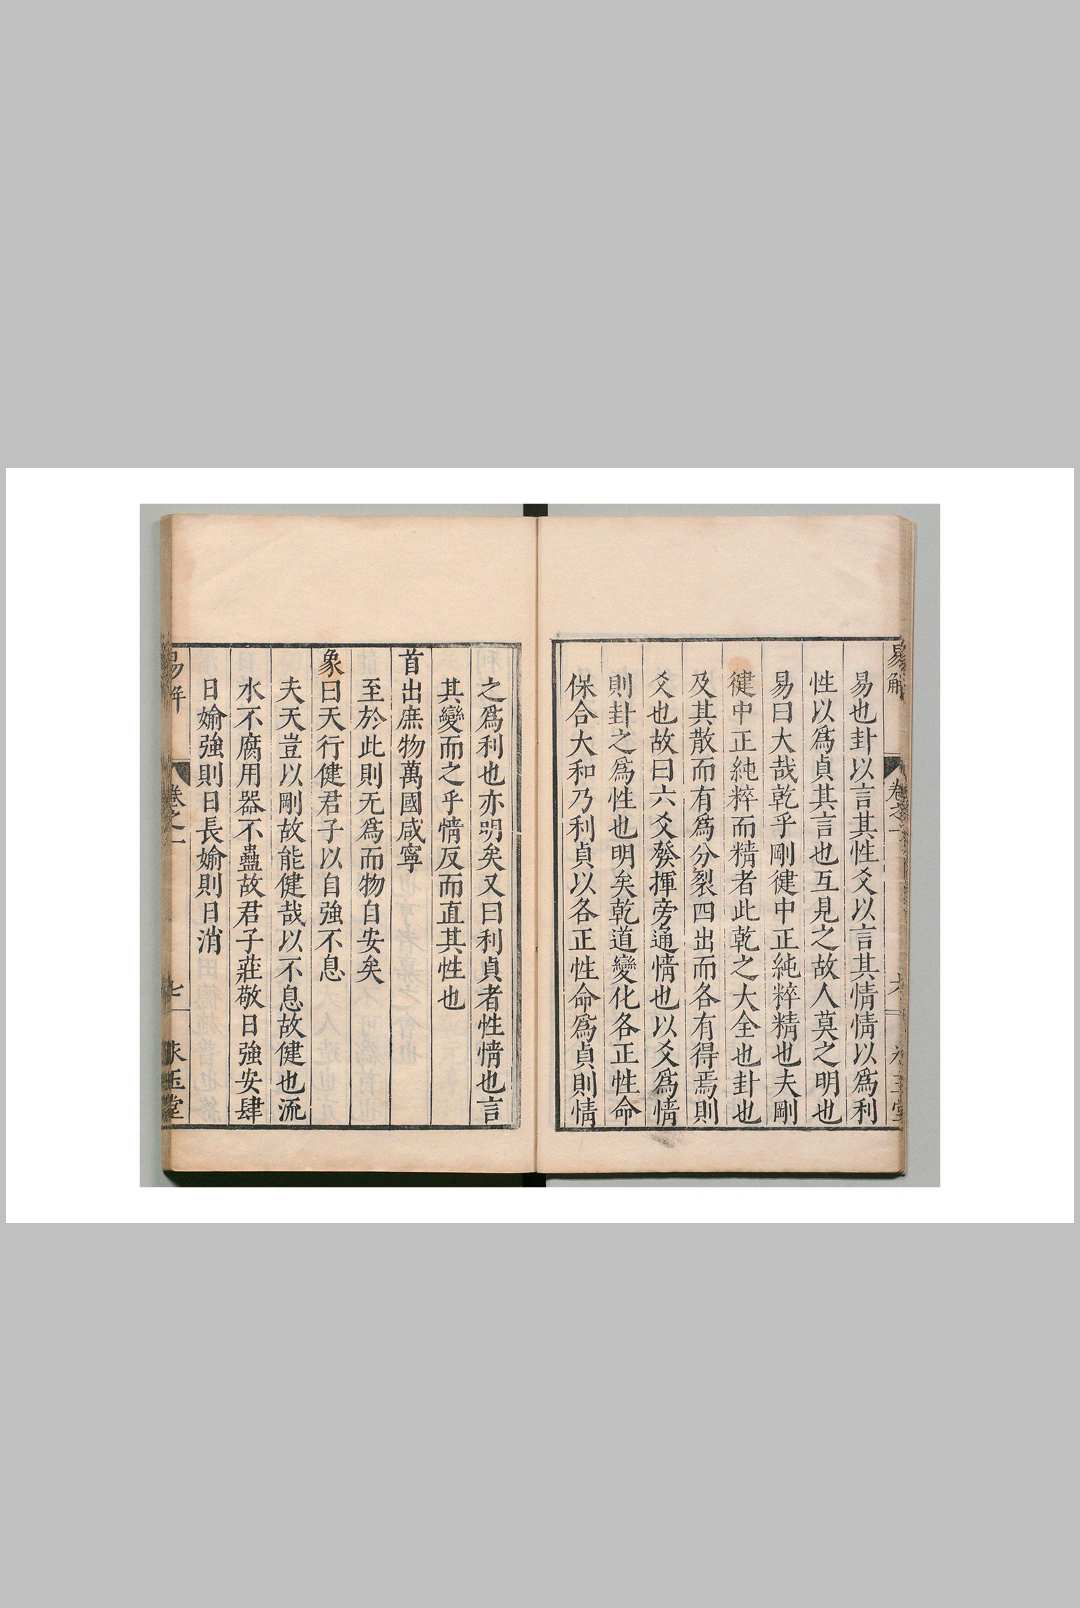 易解
卷之一
易也卦以言其性爻以言其情情以爲利
性以爲貞其言也互見之故人莫之明也
易曰大哉乾乎剛徤中正純粹精也夫剛
徤中正純粹而精者此乾之大全也卦也
及其散而有爲分裂四出而各有得焉則
爻也故曰六爻發揮旁通情也以爻爲情
則卦之爲性也明矣乾道變化各正性命
保合大和乃利貞以各正性命爲貞則情
之爲利也亦明矣又曰利貞者性情也言
其變而之乎情反而直其性也
首出庶物萬國咸寧
至於此則无爲而物自安矣
象曰天行健君子以自強不息
夫天豈以剛故能健哉以不息故健也流
水不腐用器不蠱故君子莊敬日強安肆
日媮強則日長媮則日消
易解
卷之一
七
玉堂